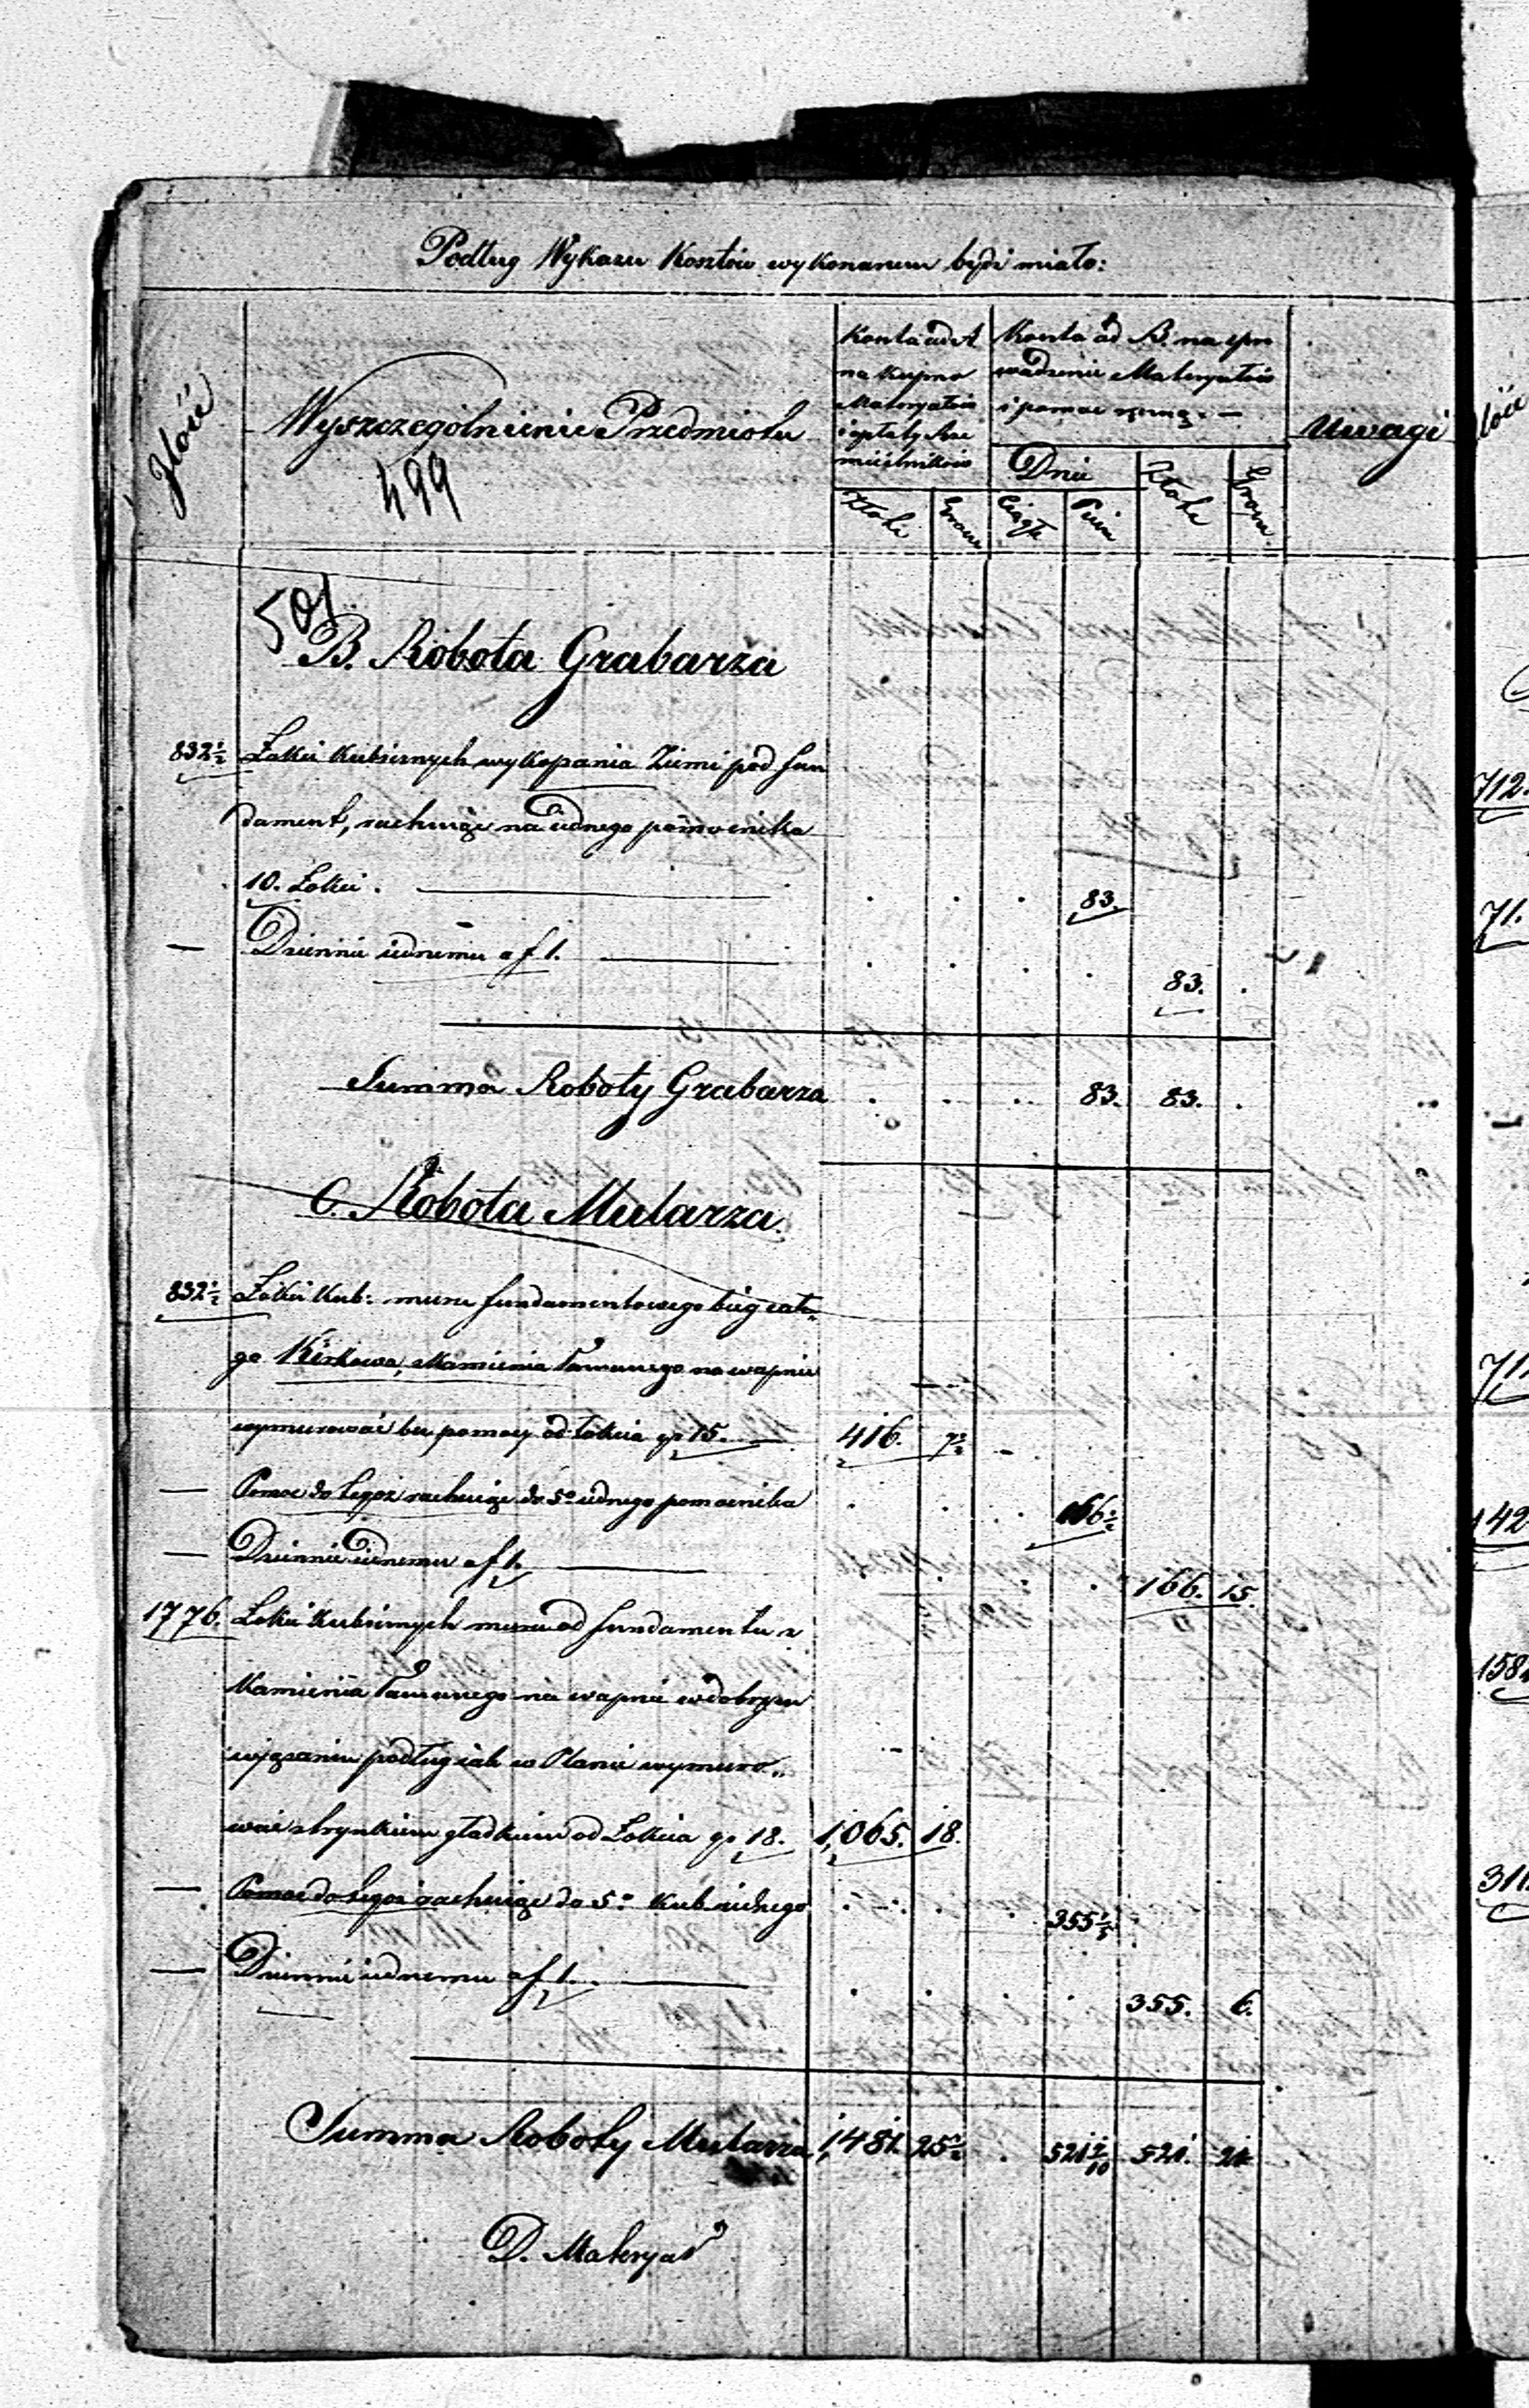 Podług Wykazu Kosztów wykonanem bydź miało:
Ilość
Wyszczególnienie Przedmiotu
499
Koszta ad A
na kupno
Materyałów
i opłaty Rze
mieślników
Złote
Grosze
Koszta ad B. na spro
wadzenie Materyałów
i pomoc ręczną. —
Dnie
Ciągłe
Piesze
Złote
Grosze
Uwagi
501
B. Robota Grabarza
832½ Łokci kubicznych wykopania Ziemi pod fun
dament, rachuiąc na iednego pomocnika
10. Łokci. — 83.
— Dziennie iednemu a f 1. — 83.
Summa Roboty Grabarza 83. 83.
C. Robota Mularza.
832½ Łokci kub: muru fundamentowego bieg całe„
go, Kamienia łamanego na wapnie
wymurować bez pomocy od łokcia gr 15. — 416. 7½
— Pomoc do tegoż rachuiąc do 5° iednego pomocnika 166½
— Dziennie iednemu a f 1. — 166. 15.
1776. Łokci kubicznych muru od fundamentu z
Kamienia łamanego na wapnie w dobrym
wiązaniu podług iak w Planie wymuro„
wać z tynkiem gładkim od Łokcia gr 18. 1,065. 18.
— Pomoc do tegoż rachuiąc do 5° kub iednego 355⅕
— Dziennie iednemu a f 1. — 355. 6.
Summa Roboty Mularza 1,481. 25½ 521 7/10 521. 21
D. Materyał
712.
71.
71.
142
158
311.